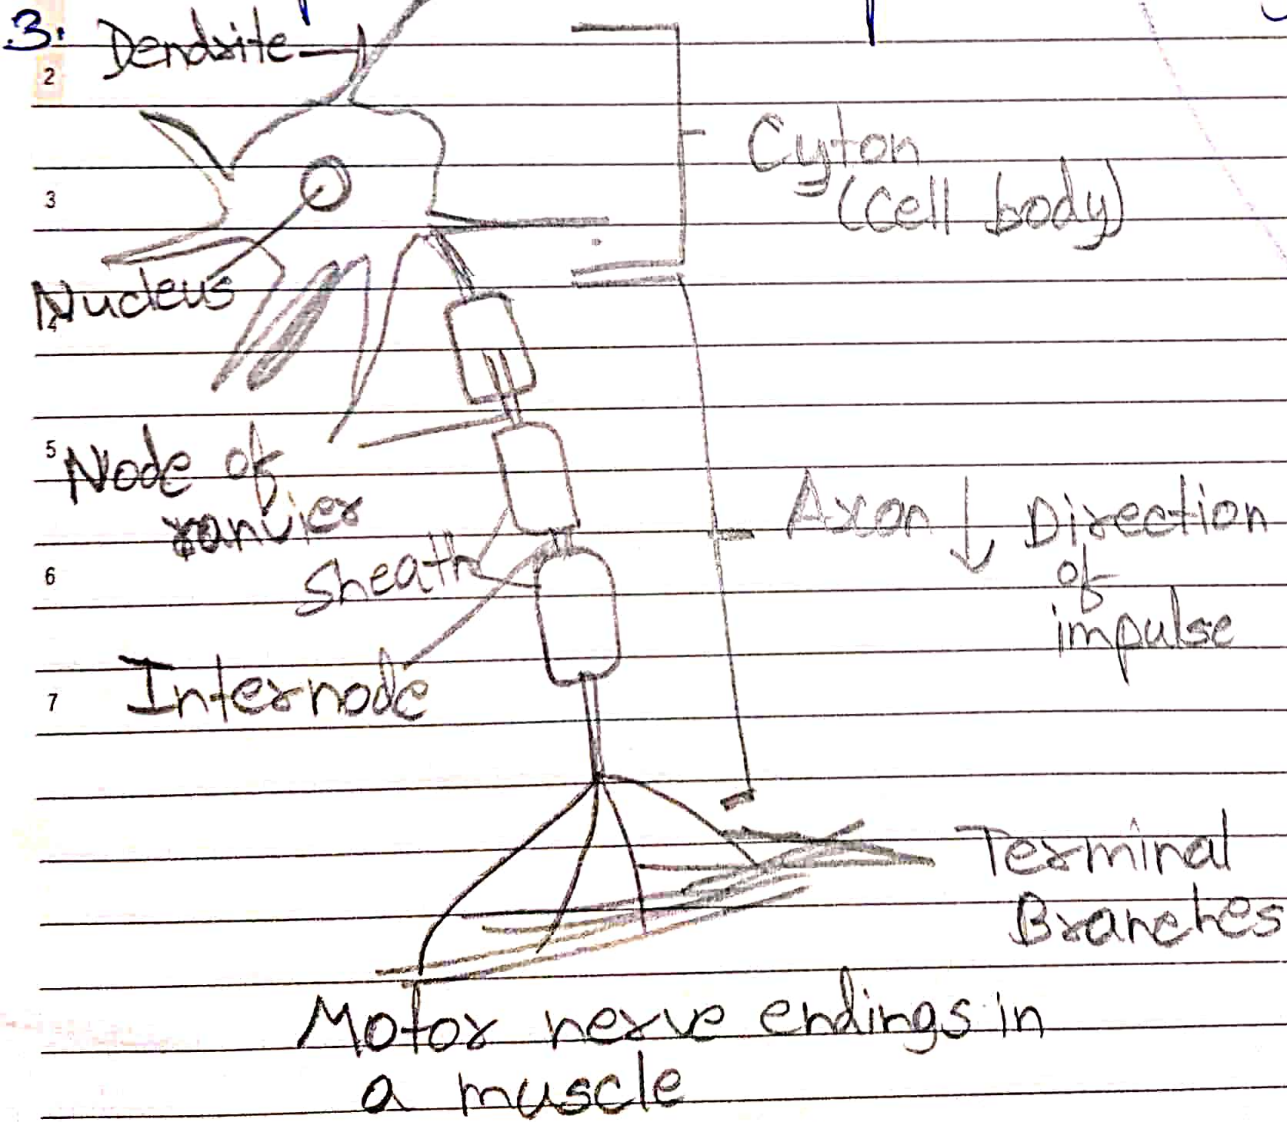 3.
Dendrite
2
Cyton
(cell body)
3
Nucleus
4
5
Node of
ranvier
Axon ↓ Direction
of
impulse
sheath
6
Internode
7
Terminal
Branches
Motor nerve endings in
a muscle